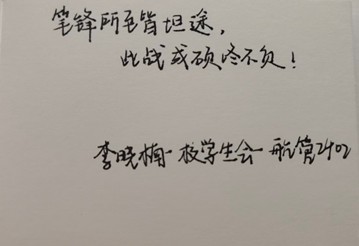 笔锋所至皆坦途，
此战或硕终不负！
李晓楠 校学生会 航管2402